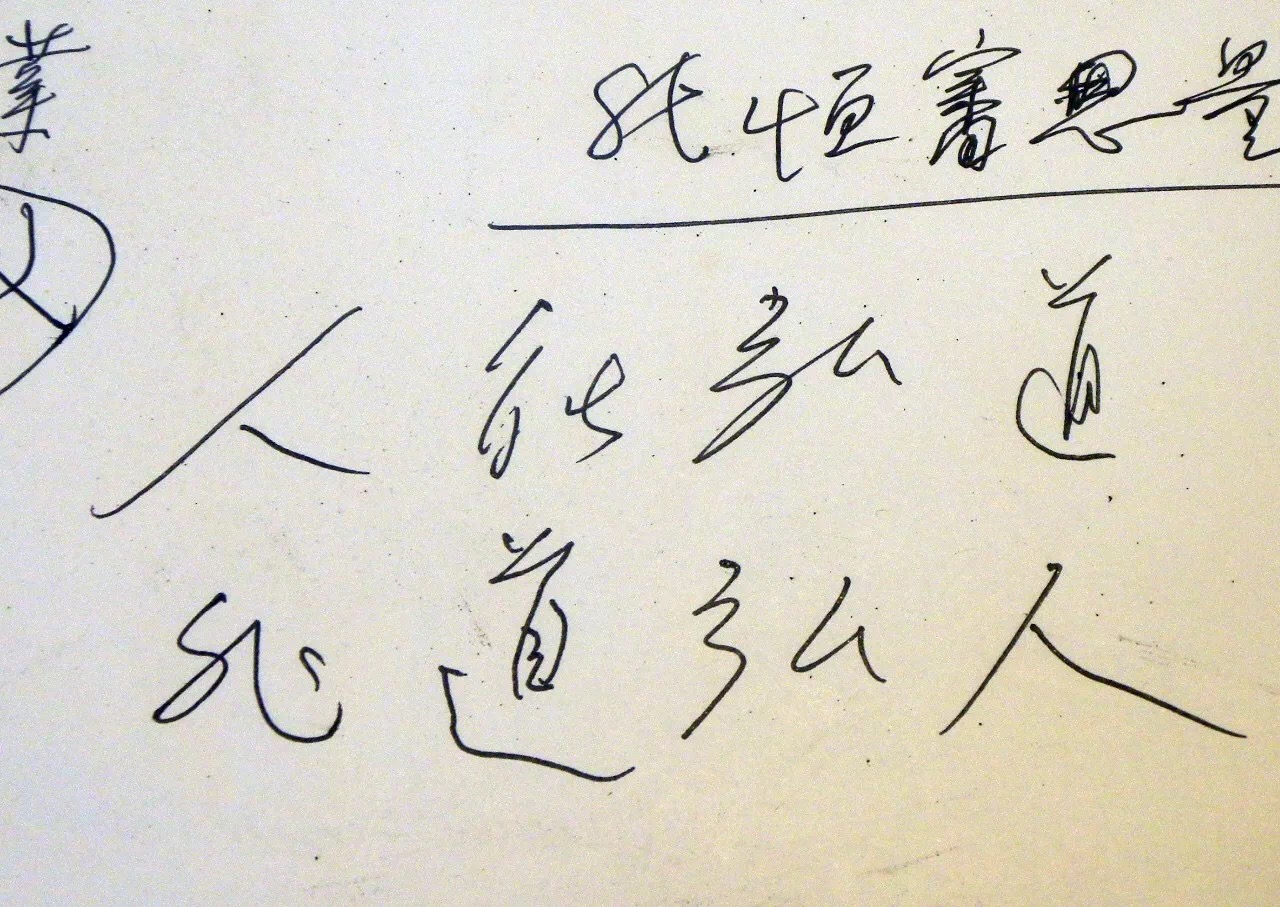 業
能恒審思量
人能弘道
非道弘人